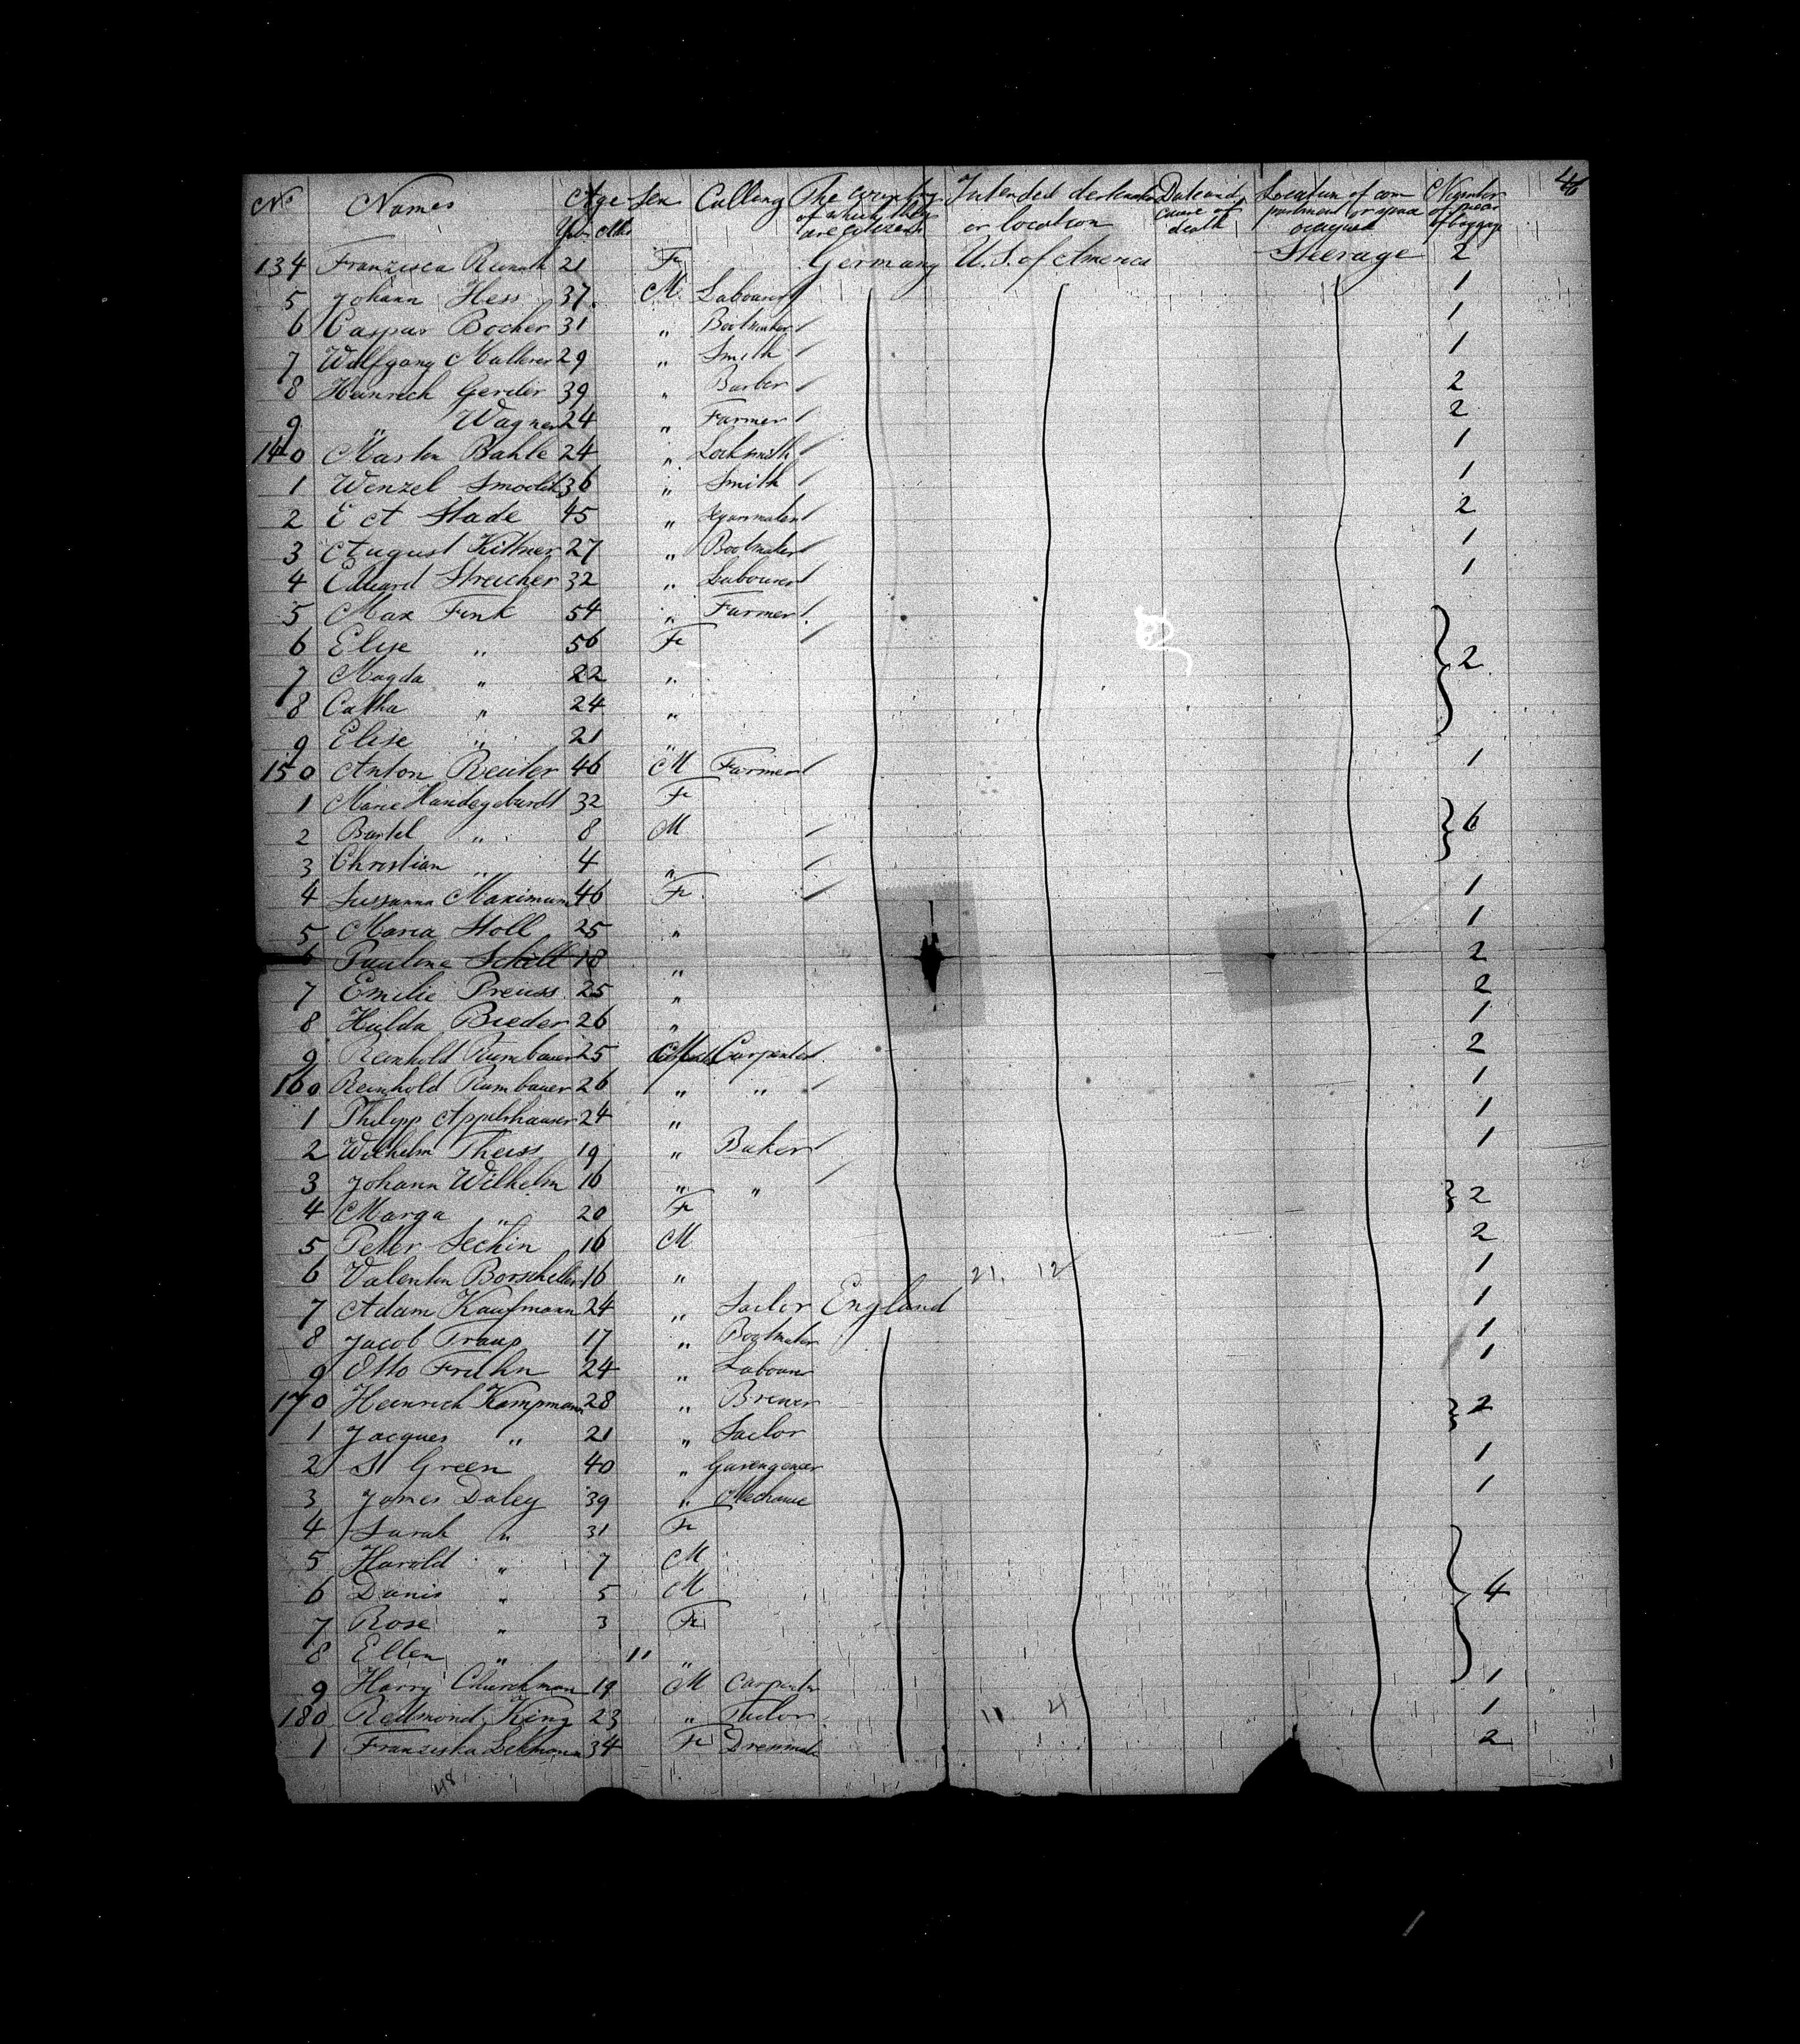 46
No Names Age Sex Calling The country Intended destination Date and Location of com Number
Yrs Mths of which they or location cause of partment or space of pieces
are citizens death occupied of baggage
134 Franzisca 21 Fe Germany U.S. of America Steerage 2
5 Johann Hess 37 M Labourer 1
6 Caspar Bocher 31 " Bootmaker 1
7 Wolfgang 29 " Smith 1
8 Heinrich Gerder 39 " Barber 2
9 " Wagner 24 " Farmer 2
140 Martin Bahle 24 " Locksmith 1
1 Wenzel 36 " Smith 1
2 E A Stade 45 " 2
3 August Kittner 27 " Bootmaker 1
4 Eduard Streicher 32 " Labourer 1
5 Max Fink 54 " Farmer
6 Elise " 56 Fe
7 Magda " 22 " } 2
8 Catha " 24 "
9 Elise " 21 "
150 Anton Reuter 46 M Farmer 1
1 Marie 32 Fe
2 Bartel " 8 M } 6
3 Christian " 4 "
4 Sussanna Maximum 46 Fe 1
5 Maria Stoll 25 " 1
6 Pauline Schill 18 " 2
7 Emilie Preuss 25 " 2
8 Hulda Bieder 26 " 1
9 Reinhold Rumbauer 25 M Carpenter 2
160 Reinhold Rumbauer 26 " " 1
1 Philipp Appelshauser 24 " 1
2 Wilhelm Theiss 19 " Baker 1
3 Johann Wilhelm 16 " "
4 Marga " 20 Fe } 2
5 Peter Sechin 16 M 2
6 Valentin Borscheller 16 " 21. 12 1
7 Adam Kaufmann 24 " Sailor England 1
8 Jacob Traup 17 " Bootmaker 1
9 Otto Fruhn 24 " Labourer 1
170 Heinrich Kampmann 28 " Brewer } 2
1 Jacques " 21 " Sailor
2 S Green 40 " 1
3 James Daley 39 " Mechanic 1
4 Sarah " 31 Fe
5 Harold " 7 M
6 Danis " 5 M } 4
7 Rose " 3 Fe
8 Ellen " 11 "
9 Harry Churchman 19 M Carpenter 1
180 Redmond King 23 " Tailor 11 4 1
1 Franziska Lehmann 34 Fe Dressmaker 2
48